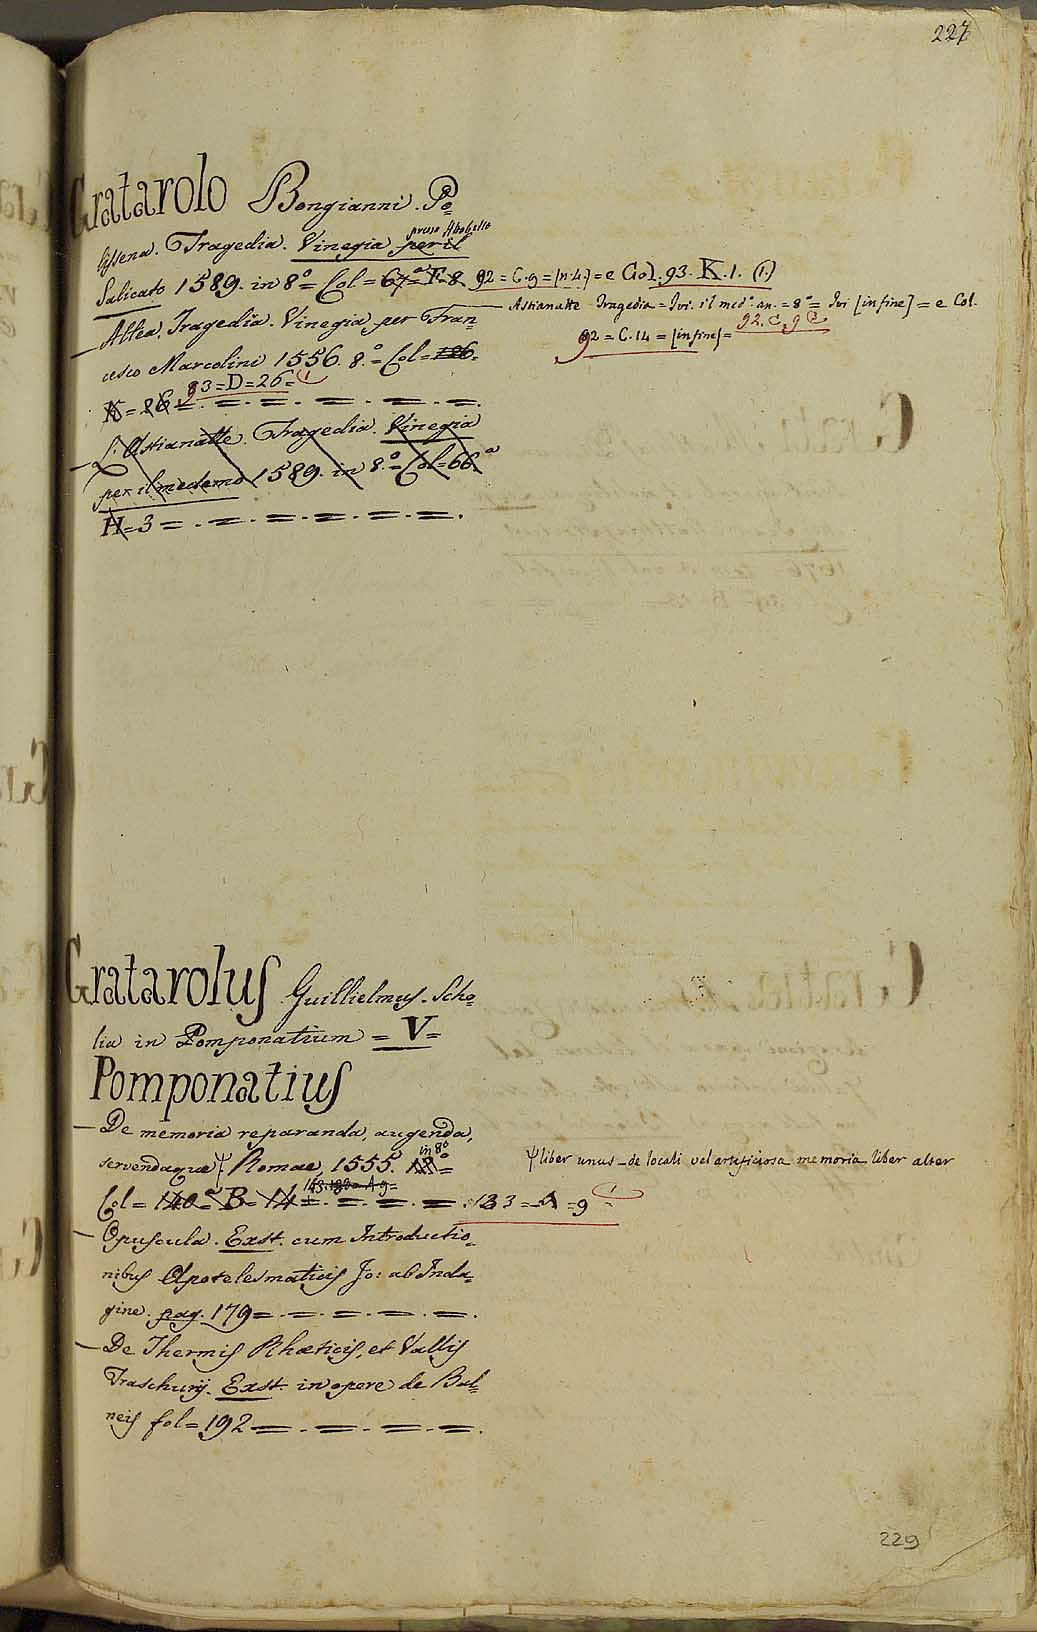 227
Gratarolo Bongianni. Po=
lissena. Tragedia. Vinegia per il presso Altobello
Salicato 1589. in 8.º = Col = 67ª = F = 8. 92 = C. 9 = [n. 4.] = e Col. 93. K. 1. (1.)
— Astianatte - Tragedia = Ivi. il med.º an. = 8º = Ivi [in fine] = e Col.
92 = C. 14 = [in fine] = 92. C. 9 (2)
— Altea. Tragedia. Vinegia per Fran=
cesco Marcolini 1556. 8.º = Col = 126.
K = 26 = 93 = D = 26 = 1
— L'Astianatte. Tragedia. Vinegia
per il medemo 1589. in 8.º = Col = 66.ª
H = 3 = . = . = . = . = . = .
Gratarolus Guillielmus. Scho=
lia in Pomponatium = V =
Pomponatius
— De memoria reparanda, augenda,
servendaque Ψ Romae, 1555. in 8º =
Ψ liber unus - de locali vel artificiosa memoria liber alter
Col = 140ª = B = 14 = . = . = . = . 133 = A = 9 1
— Opuscula. Exst. cum Introductio=
nibus Apotelesmaticis Jo: ab Inda=
gine. pag. 179 = . = . = . = . = .
— De Thermis Rhæticis, et Vallis
Traschurij. Exst. in opere de Bal=
neis fol = 192 = . = . = . = .
229